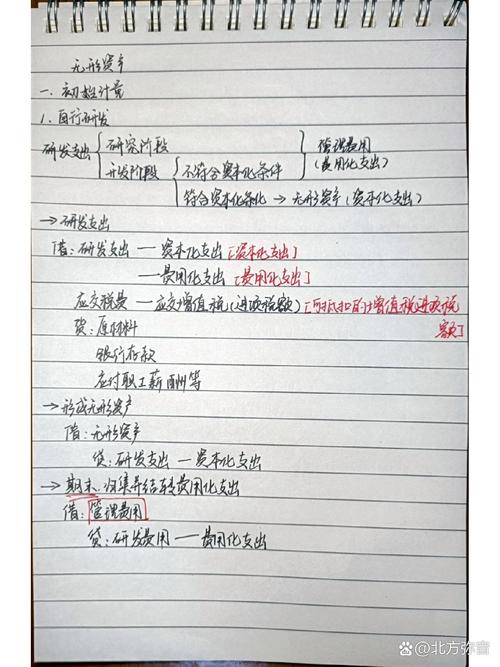 无形资产
一.初始计量
1.自行研发
研发支出 { 研究阶段 } 管理费用
开发阶段 { 不符合资本化条件 } (费用化支出)
符合资本化条化 → 无形资产(资本化支出)
→研发支出
借:研发支出 — 资本化支出 [资本化支出]
—费用化支出 [费用化支出]
应交税费 — 应交增值税(进项税额) [可抵扣的增值税进项税
额]
贷:原材料
银行存款
应付职工薪酬等
→形成无形资产
借:无形资产
贷:研发支出 — 资本化支出
→期末:归集并结转费用化支出
借:管理费用
贷:研发费用 — 费用化支出
@北方弥音